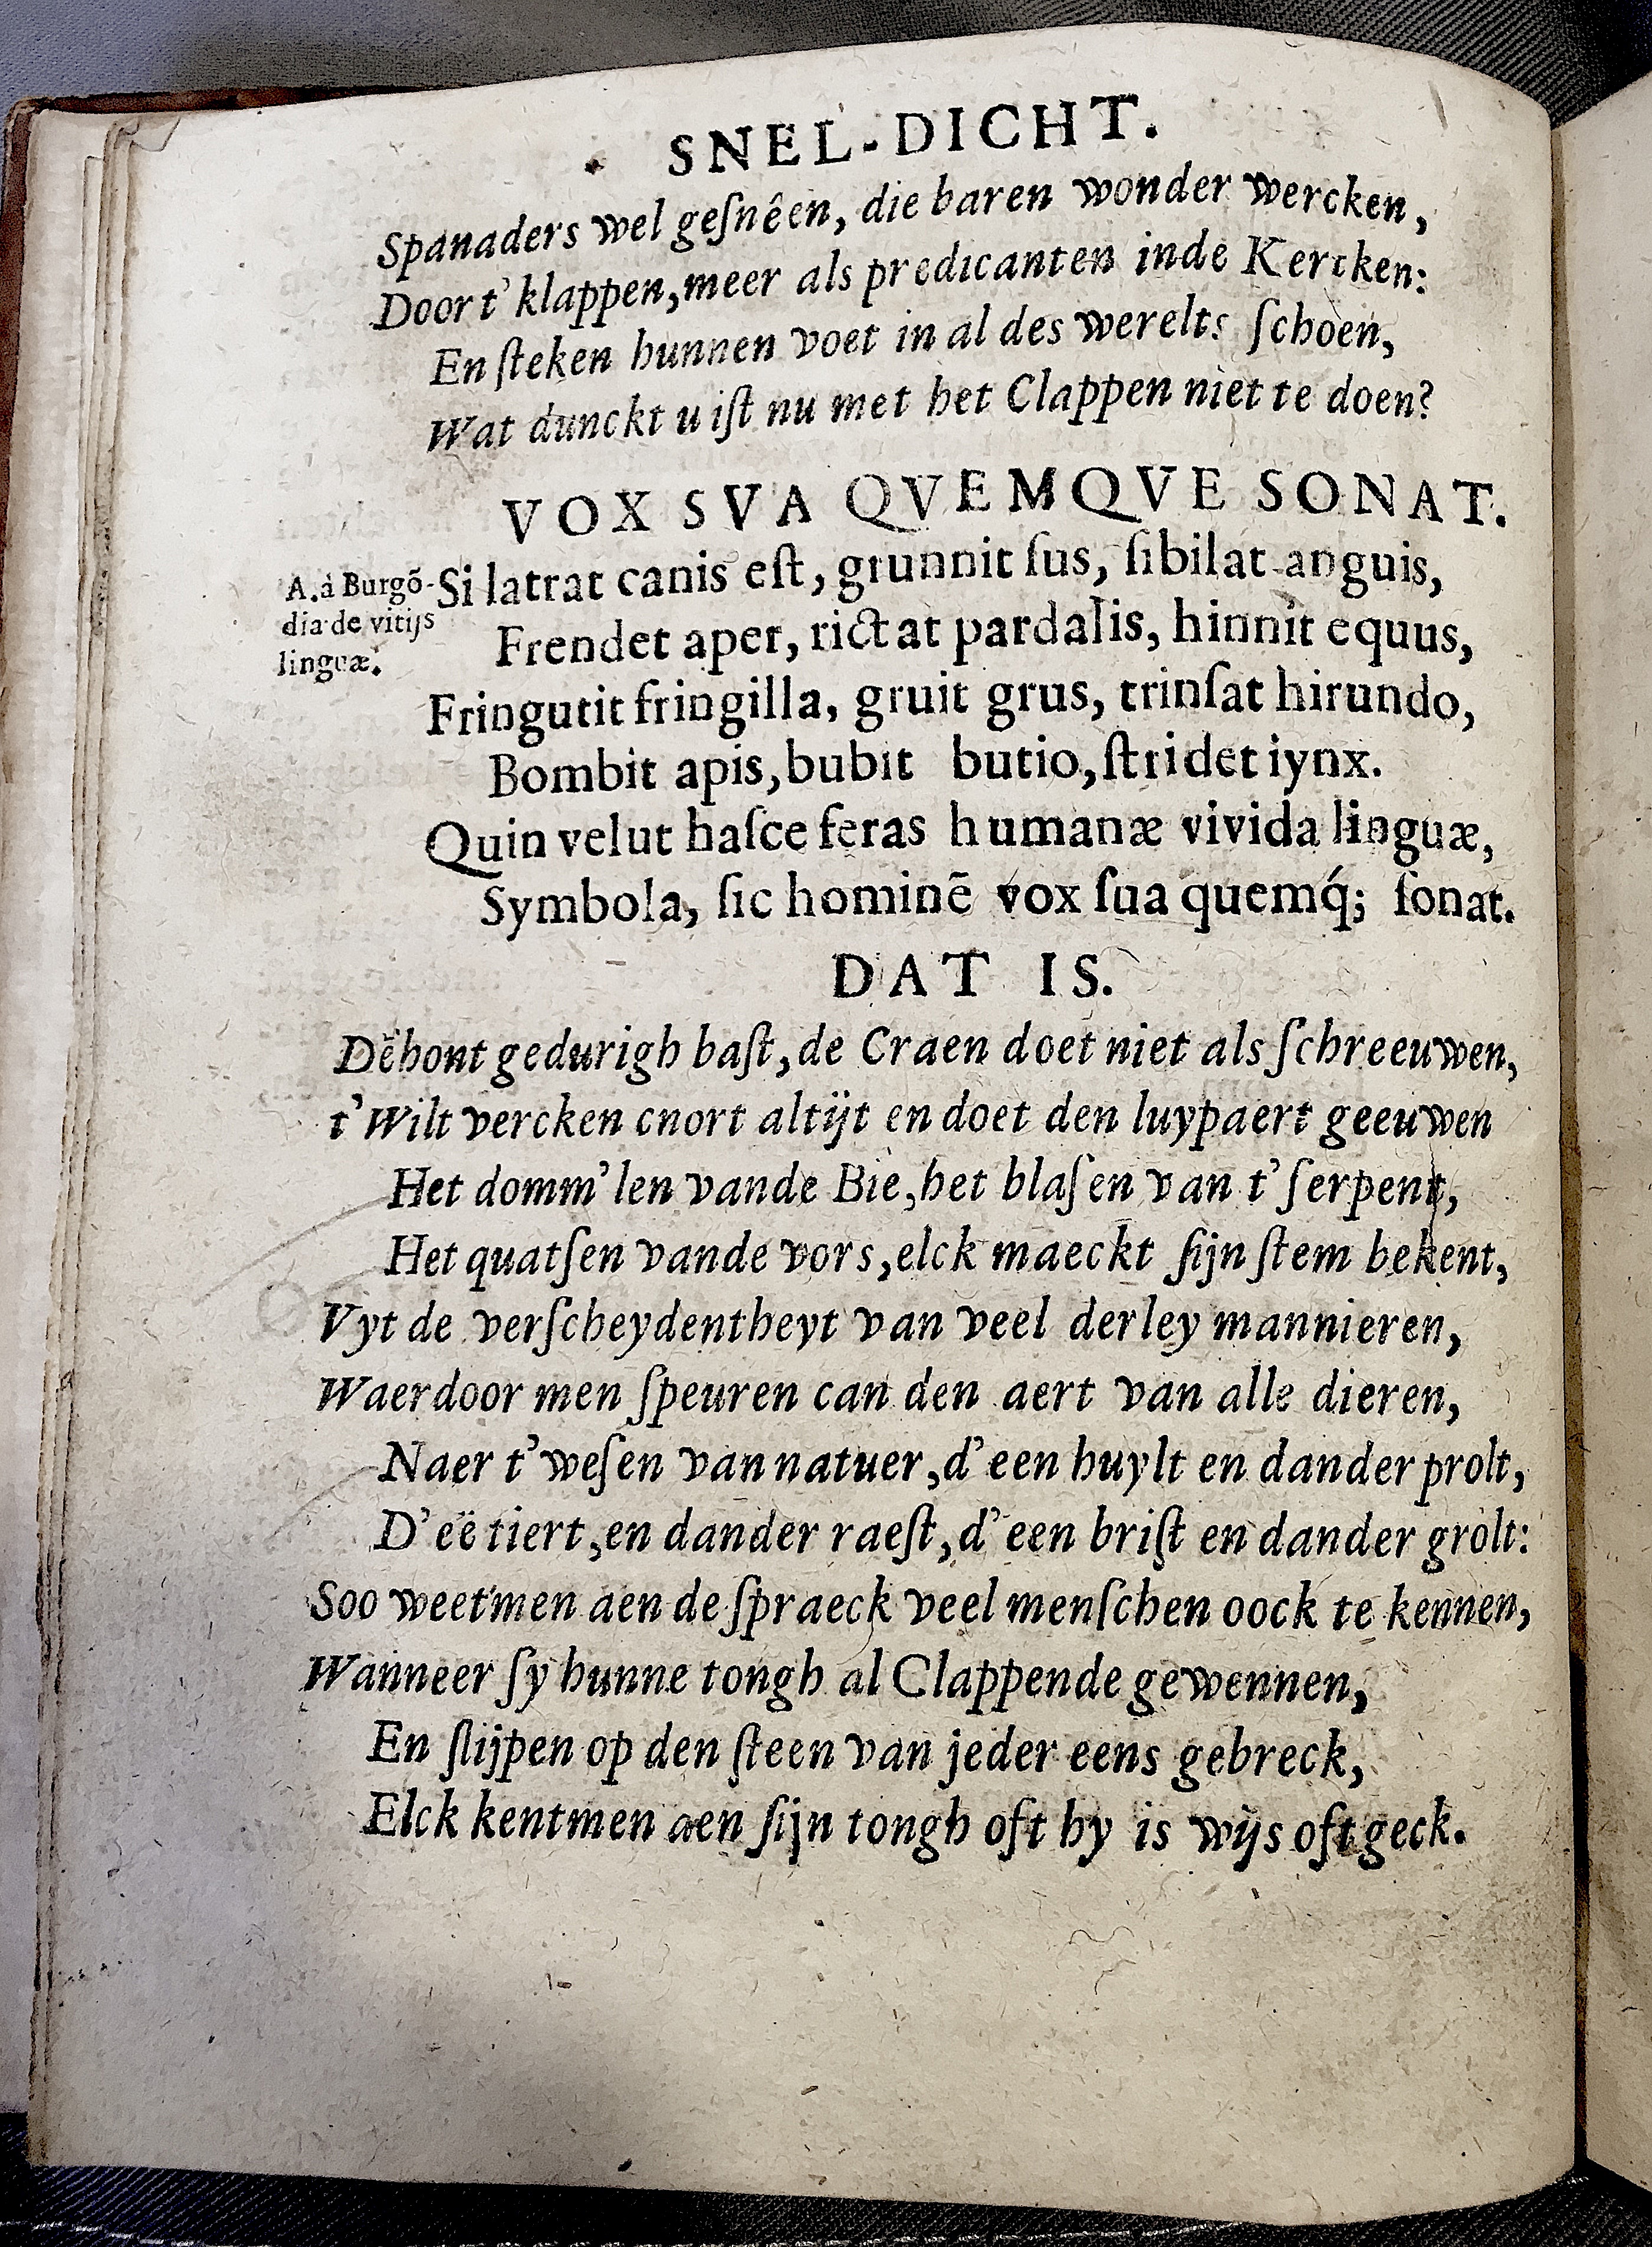 SNEL-DICHT.
Spanaders wel geſnêen, die baren wonder wercken,
Door t' klappen, meer als predicanten inde Kercken:
En ſteken hunnen voet in al des werelts ſchoen,
Wat dunckt u iſt nu met het Clappen niet te doen?
VOX SVA QVEMQVE SONAT.
A. à Burgō-
dia de vitijs
linguæ.
Si latrat canis eſt, grunnit ſus, ſibilat anguis,
Frendet aper, rictat pardalis, hinnit equus,
Fringutit fringilla, gruit grus, trinſat hirundo,
Bombit apis, bubit butio, ſtridet iynx.
Quin velut haſce feras humanæ vivida linguæ,
Symbola, ſic hominē vox ſua quemq́; ſonat.
DAT IS.
Dēhont gedurigh baſt, de Craen doet niet als ſchreeuwen,
t' Wilt vercken cnort altijt en doet den luypaert geeuwen
Het domm'len vande Bie, het blaſen van t' ſerpent,
Het quatſen vande vors, elck maeckt ſijn ſtem bekent,
Vyt de verſcheydentheyt van veel derley mannieren,
Waerdoor men ſpeuren can den aert van alle dieren,
Naer t' weſen van natuer, d' een huylt en dander prolt,
D' eē tiert, en dander raeſt, d' een briſt en dander grolt:
Soo weetmen aen de ſpraeck veel menſchen oock te kennen,
Wanneer ſy hunne tongh al Clappende gewennen,
En ſlijpen op den ſteen van jeder eens gebreck,
Elck kentmen aen ſijn tongh oft hy is wijs oft geck.